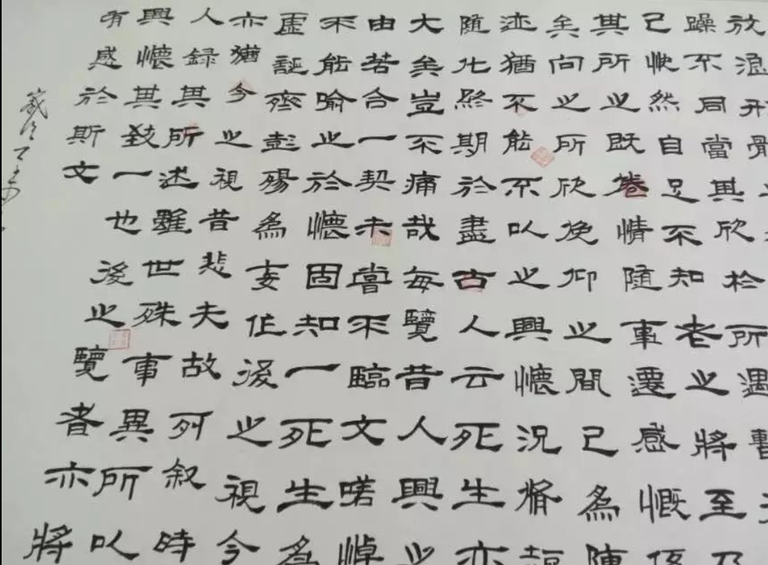 放浪形骸
躁不同當其欣於所遇暫
己快然自足不知老之將至乃
其所之既惓情随事遷感慨係
矣向之所欣俛仰之間已為陳
迹猶不能不以之興懷況脩短
随化終期於盡古人云死生亦
大矣豈不痛哉每覽昔人興之
由若合一契未嘗不臨文嗟悼
不能喻之於懷固知一死生為
虛誕齊彭殤為妄作後之視今
亦猶今之視昔悲夫故列叙時
人録其所述雖世殊事異所以
興懷其致一也後之覽者亦將
有感於斯文